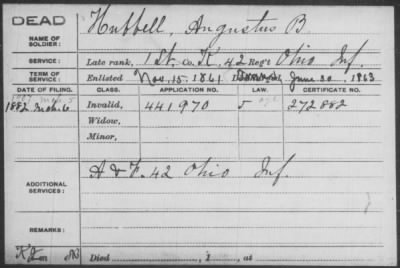 DEAD
NAME OF SOLDIER: Hubbell, Augustus B.
SERVICE: Late rank, 1st. Co. K, 42 Reg't Ohio Inf.
TERM OF SERVICE: Enlisted Nov. 15, 1861, June 30, 1863
DATE OF FILING. CLASS. APPLICATION NO. LAW. CERTIFICATE NO.
1882 Mch. 6 Invalid, 441970 272882
Widow,
Minor,
ADDITIONAL SERVICES: 42 Ohio Inf.
REMARKS:
Died , 1 , at